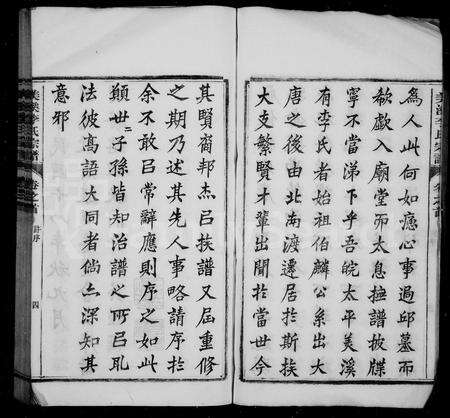 為人此何如感心事過邱墓而
欷歔入廟堂而太息撫譜披牒
寧不當涕下乎吾皖太平美溪
有李氏者始祖伯麟公系出大
唐之後由北南渡遷居於斯挨
大支繁賢才輩出聞於當世今
其賢裔邦杰㠯挨譜又屆重修
之期乃述其先人事略請序於
余不敢㠯常辭應則序之如此
願世二子孫皆知治譜之所㠯乿
法彼高語大同者倘亦深知其
意邪
美溪李氏宗譜 卷之首 訃序 四